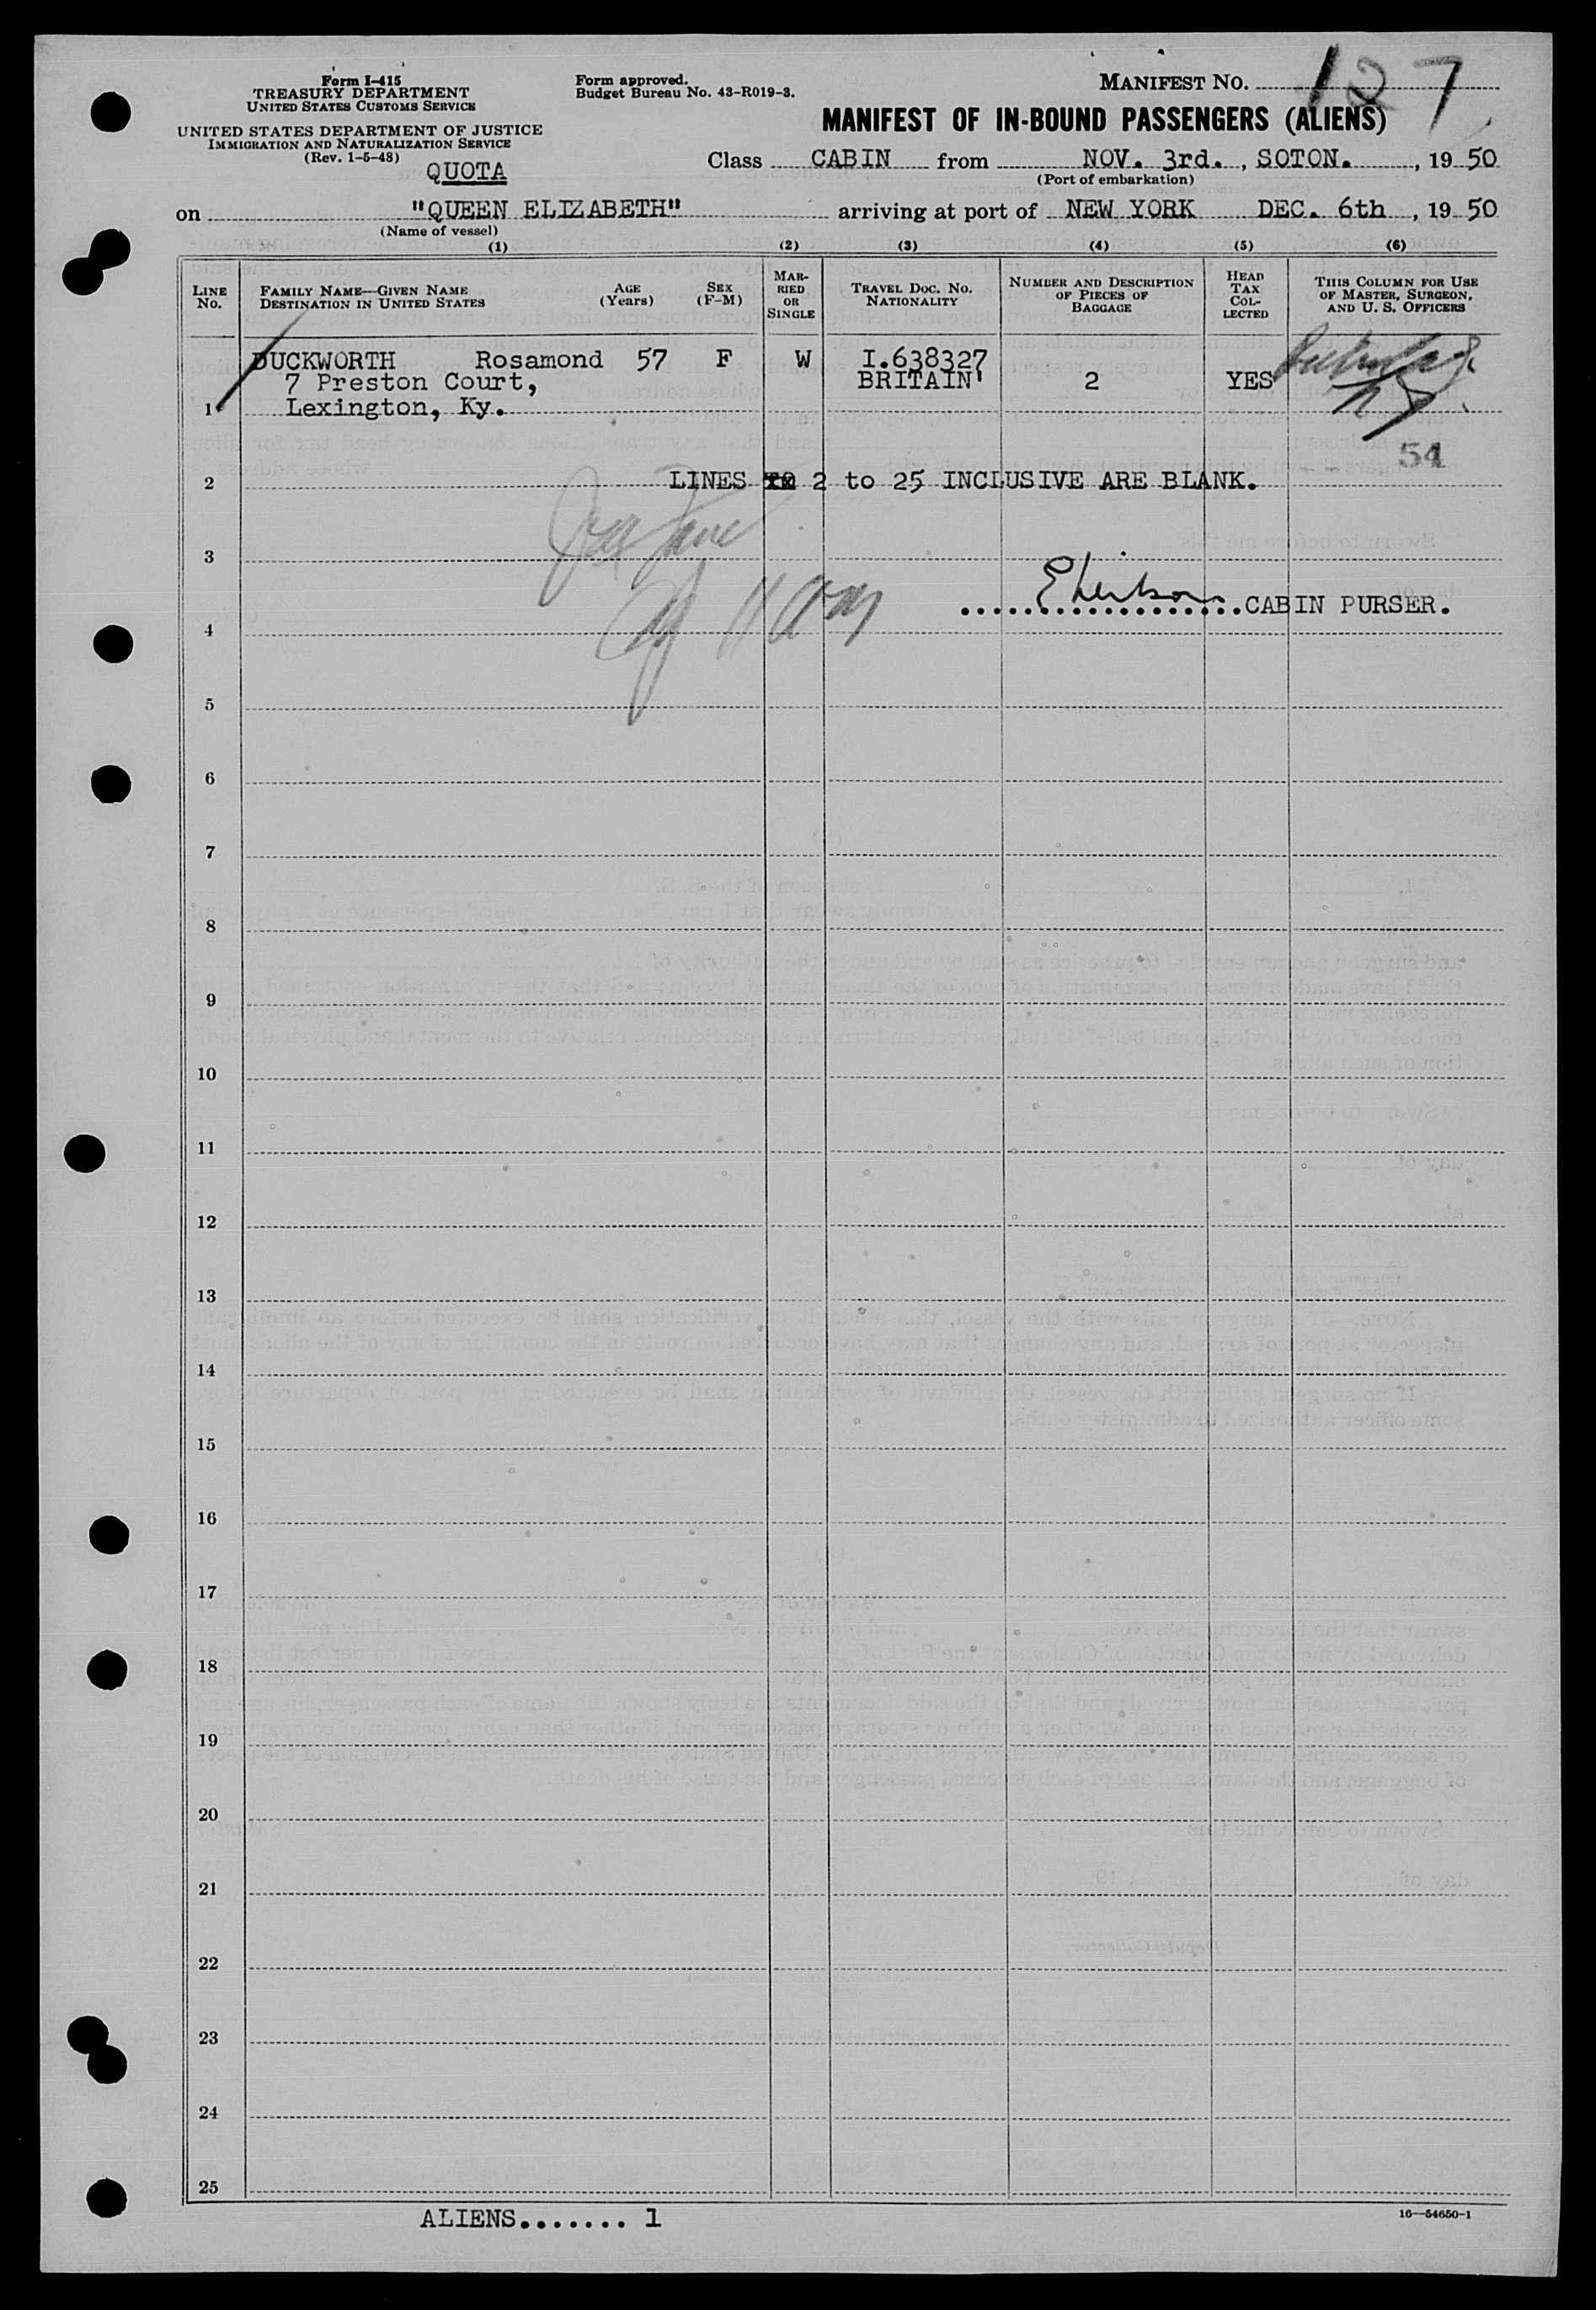 Form I-415
TREASURY DEPARTMENT
UNITED STATES CUSTOMS SERVICE
UNITED STATES DEPARTMENT OF JUSTICE
IMMIGRATION AND NATURALIZATION SERVICE
(Rev. 1-5-48)
QUOTA
Form approved.
Budget Bureau No. 43-R019-3.
MANIFEST NO. 127
MANIFEST OF IN-BOUND PASSENGERS (ALIENS)
Class CABIN from NOV. 3rd., SOTON., 19 50
(Port of embarkation)
on "QUEEN ELIZABETH" arriving at port of NEW YORK DEC. 6th, 19 50
(Name of vessel)
(1) (2) (3) (4) (5) (6)
LINE NO.
FAMILY NAME—GIVEN NAME
DESTINATION IN UNITED STATES
AGE (Years)
SEX (F-M)
MARRIED OR SINGLE
TRAVEL DOC. NO.
NATIONALITY
NUMBER AND DESCRIPTION OF PIECES OF BAGGAGE
HEAD TAX COLLECTED
THIS COLUMN FOR USE OF MASTER, SURGEON, AND U. S. OFFICERS
DUCKWORTH Rosamond 57 F W I.638327
7 Preston Court, BRITAIN 2 YES
1 Lexington, Ky.
54
2 LINES 2 to 25 INCLUSIVE ARE BLANK.
3
4 CABIN PURSER.
5
6
7
8
9
10
11
12
13
14
15
16
17
18
19
20
21
22
23
24
25
ALIENS....... 1
16—54650-1